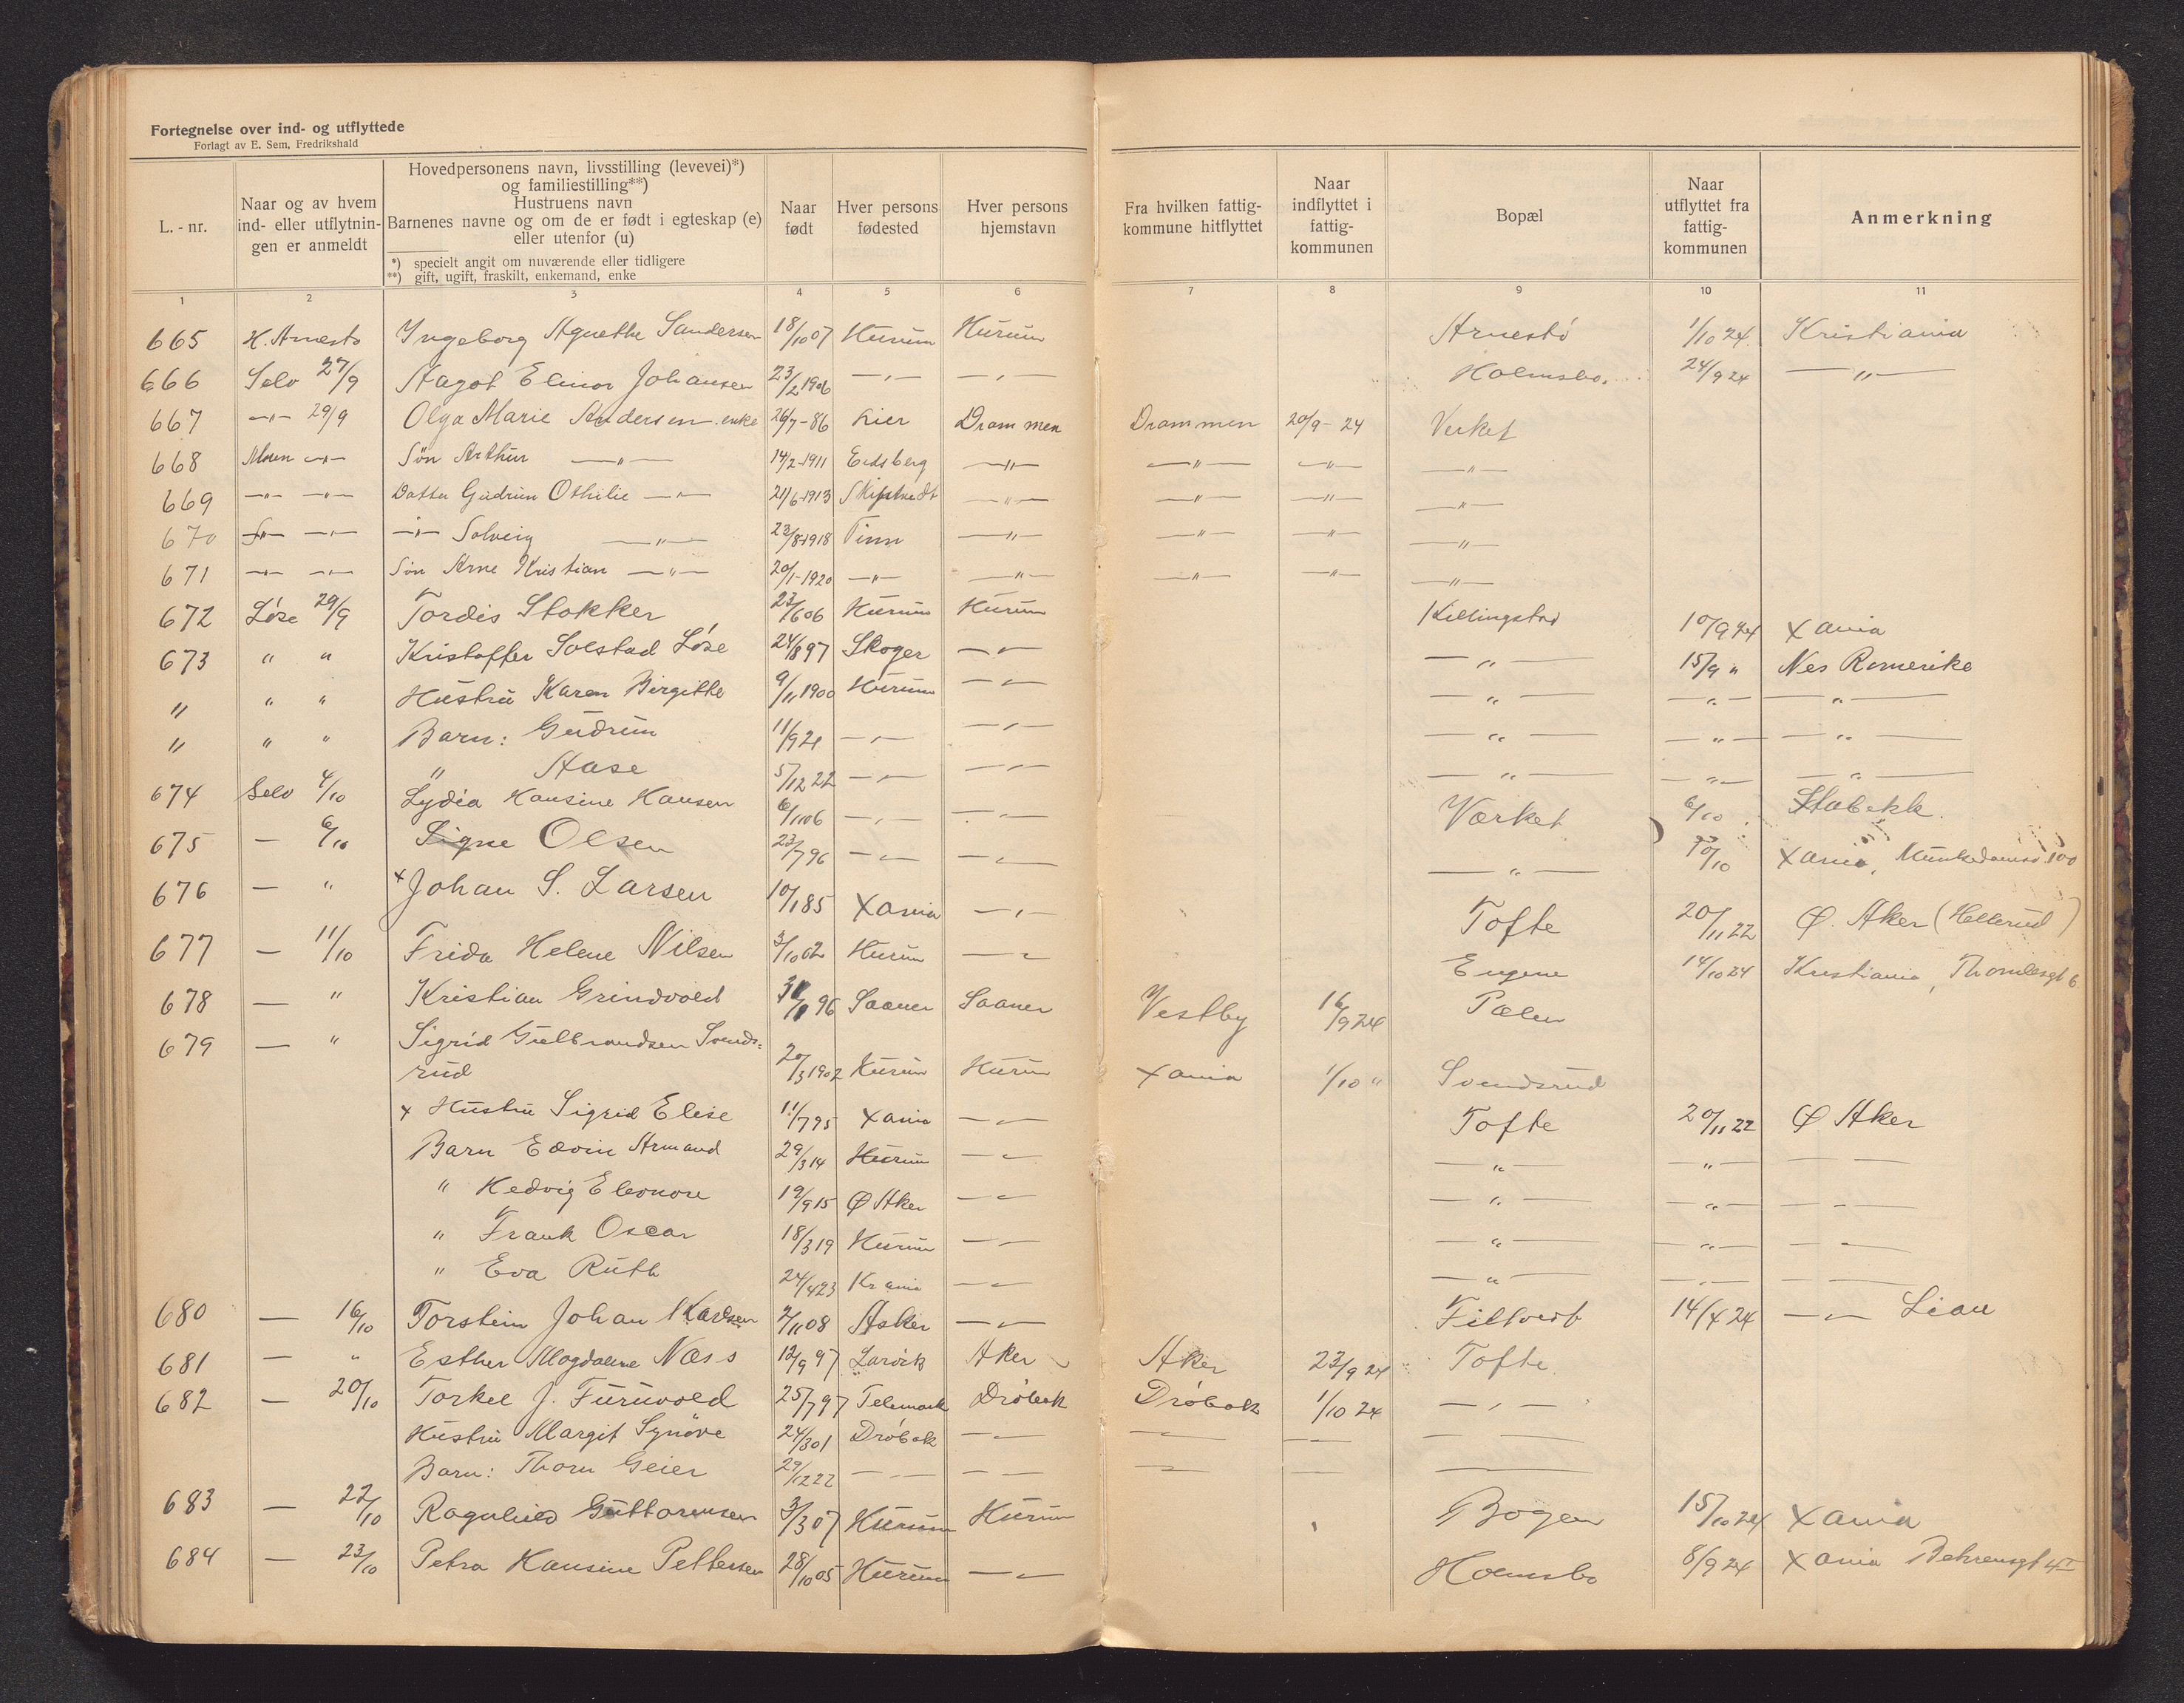 Fortegnelse over ind- og utflyttede
Forlagt av E. Sem, Fredrikshald
L. - nr. | Naar og av hvem ind- eller utflytnin-gen er anmeldt | Hovedpersonens navn, livsstilling (levevei)*) og familiestilling**) Hustruens navn Barnenes navne og om de er født i egteskap (e) eller utenfor (u) *) specielt angit om nuværende eller tidligere **) gift, ugift, fraskilt, enkemand, enke | Naar født | Hver persons fødested | Hver persons hjemstavn | Fra hvilken fattig-kommune hitflyttet | Naar indflyttet i fattig-kommunen | Bopæl | Naar utflyttet fra fattig-kommunen | Anmerkning
1 | 2 | 3 | 4 | 5 | 6 | 7 | 8 | 9 | 10 | 11
665 | H. Arnestø | Ingeborg Agnethe Sandersen | 18/10 07 | Hurum | Hurum | | | Arnestø | 1/10 24. | Kristiania
666 | Selv 27/9 | Aagot Elinor Johansen | 23/2 1906 | —„— | —„— | | | Holmsbo. | 24/9 24 | —„—
667 | —„— 29/9 | Olga Marie Andersen. enke | 26/7-86 | Lier | Drammen | Drammen | 20/9-24 | Verket
668 | Moren —„— | Søn Arthur —„— | 14/2-1911 | Eidsberg | —„— | —„— | —„— | —„—
669 | —„— —„— | Datter Gudrun Othilie —„— | 21/6-1913 | Skiptvedt | —„— | —„— | —„— | —„—
670 | —„— —„— | —„— Solveig —„— | 23/8-1918 | Tinn | —„— | —„— | —„— | —„—
671 | —„— —„— | Søn Arne Kristian —„— | 20/1-1920 | —„— | —„— | —„— | —„— | —„—
672 | Løse 29/9 | Tordis Stokker | 23/6 06 | Hurum | Hurum | | | Killingstad | 10/9 24 | Xania
673 | „ „ | Kristoffer Solstad Løse | 24/8 97 | Skoger | —„— | | | —„— | 15/9 „ | Nes Romerike
„ | „ „ | Hustru Karen Birgitte | 9/11 1900 | Hurum | —„— | | | —„— | —„— | —„—
„ | „ „ | Barn: Gudrun | 11/9 21 | —„— | —„— | | | —„— | —„— | —„—
„ Aase | 5/12 22 | —„— | —„— | | | —„— | —„— | —„—
674 | Selv 4/10 | Lydia Hansine Hansen | 6/1 06 | —„— | —„— | | | Værket | 6/10 | Stabekk.
675 | — 6/10 | Signe Olsen | 23/7 96 | —„— | —„— | | | —„— | 10/10 | Xania, Munkedamsv. 100
676 | — „ | x Johan S. Larsen | 10/1 85 | Xania | —„— | | | Tofte | 20/11 22 | Ø. Aker (Hellerud)
677 | — 11/10 | Frida Helene Nilsen | 3/10 02 | Hurum | —„— | | | Engene | 14/10 24 | Kristiania,
678 | — „ | Kristian Grindvold | 96 | Saaner | Saaner | Vestby | 16/9 24 | Pælen
679 | — „ | Sigrid Gulbrandsen Svends=
rud | 20/3 1902 | Hurum | Hurum | Xania | 1/10 „ | Svendsrud
x Hustru Sigrid Elise | 11/7 95 | Xania | —„— | | | Tofte | 20/11 22 | Ø Aker
Barn Edvin Armand | 29/3 14 | Hurum | —„— | | | —„— | „ | — —
„ Hedvig Eleonore | 19/9 15 | Ø Aker | —„— | | | —„— | —„— | — „ —
„ Frank Oscar | 18/3 19 | Hurum | —„— | | | —„— | —„— | — „ —
„ Eva Ruth | 24/4 23 | Kr ania | —„— | | | —„— | —„— | — —
680 | — 16/10 | Torstein Johan Karlsen | 2/11 08 | Asker | —„— | | | Filtvedt | 14/4 24 | —„— Lian
681 | — „ | Esther Magdalene Næss | 12/9 97 | Larvik | Aker | Aker | 23/9 24 | Tofte
682 | — 20/10 | Torkel J. Furuvold | 25/7 97 | Telemark | Drøbak | Drøbak | 1/10 24 | —„—
Hustru Margit Synøve | 24/3 01 | Drøbak | —„— | —„— | — — | — —
Barn: Thorn Geier | 29/12 22 | — — | — — | —„— | — — | —
683 | — 22/10 | Ragnhild Guttormsen | 3/3 07 | Hurum | Hurum | | | Bogen | 15/10 24 | Xania
684 | — 23/10 | Petra Hansine Pettersen | 28/10 05 | Hurum | —„— | | | Holmsbo | 8/9 24 | Xania Behrensgt 4 I